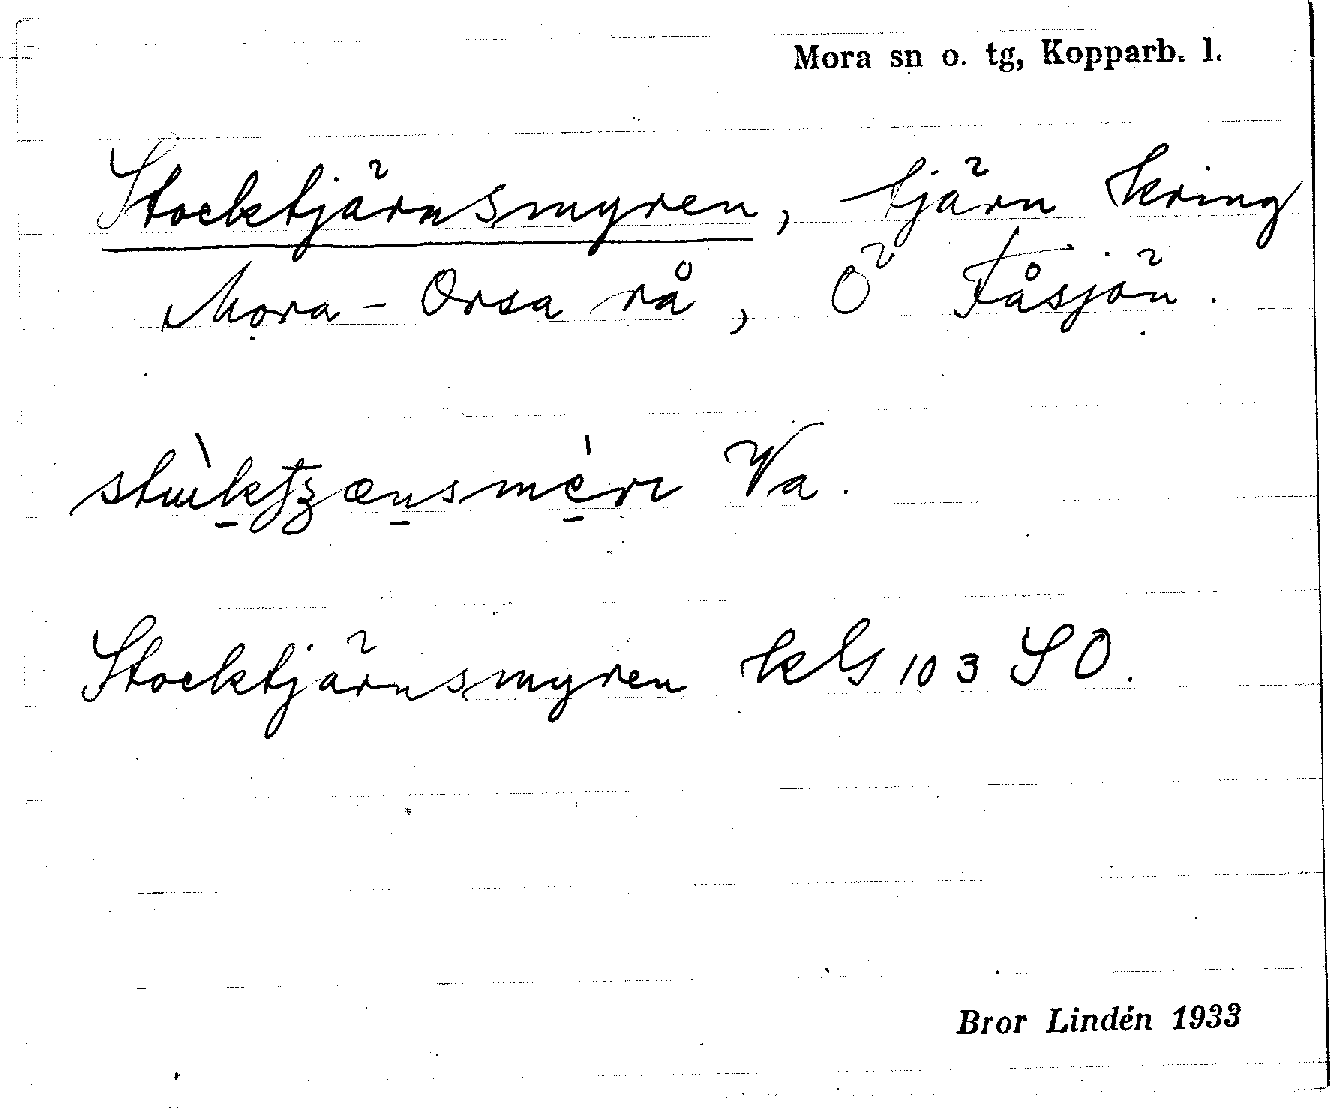 Mora sn o. tg, Kopparb. l.
Stocktjärnsmyren, tjärn kring
Mora-Orsa rå, Ö Fåsjön.
Va.
Stocktjärnsmyren kls 103 SO.
Bror Lindén 1933